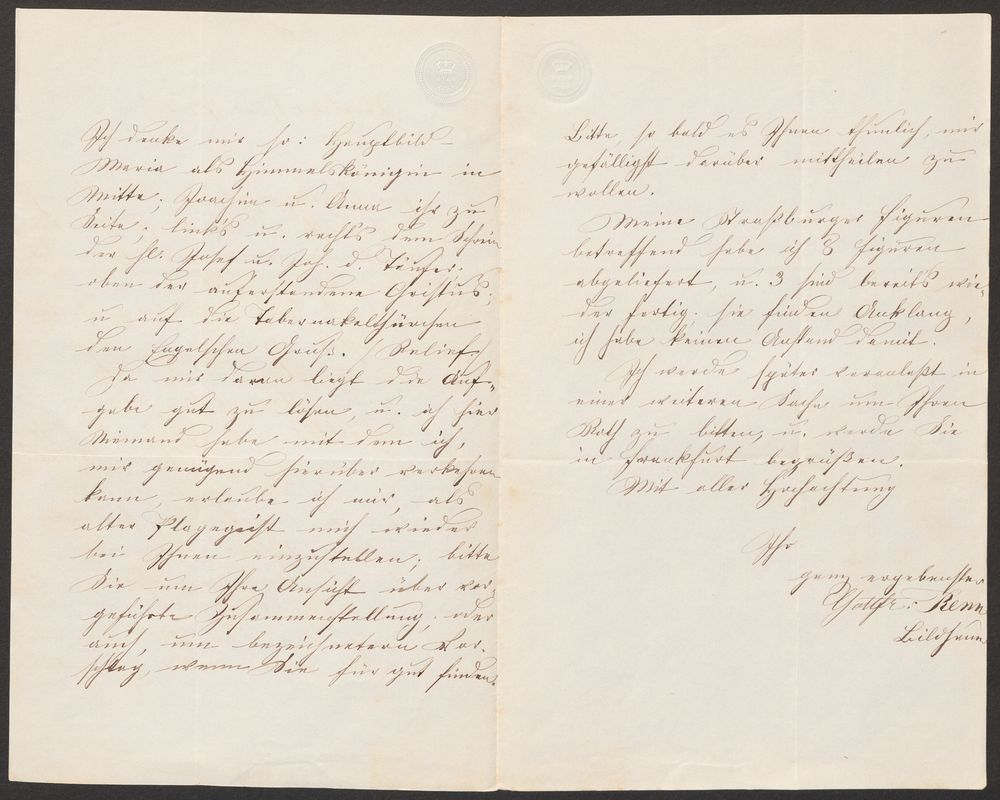 Ich denke mir so: Hauptbild
Maria als Himmelskönigin in
Mitte, Joachim u. Anna ihr zu
Seite, links u. rechts dem Schrein
der hl. Josef u. Joh. d. Täufer.
oben der auferstandene Christus,
u auf die Tabernakelthürchen
den Englischen Gruß. (Relief)
Da mir daran liegt die Auf-
gabe gut zu lösen, u. ich hier
Niemand habe mit dem ich,
mir genügend hierüber verkehren
kann, erlaube ich mir, als
alter Plagegeist mich wieder
bei Ihnen einzustellen; bitte
Sie um Ihre Ansicht über vor-
geführte Zusammenstellung, oder
auch, um bezeichnetern Vor-
schlag, wenn Sie für gut finden.
Bitte, so bald es Ihnen thunlich, mir
gefälligst darüber mittheilen zu
wollen.
Meine Straßburger Figuren
betreffend habe ich 8 Figuren
abgeliefert, u. 3 sind bereits wie-
der fertig. sie finden Anklang,
ich habe keinen Anstand damit.
Ich werde später veranlaßt in
einer weiteren Sache um Ihren
Rath zu bitten, u. werde Sie
in Frankfurt begrüßen.
Mit aller Hochachtung
Ihr
ganz ergebenster
Gottfr: Renn
Bildhauer